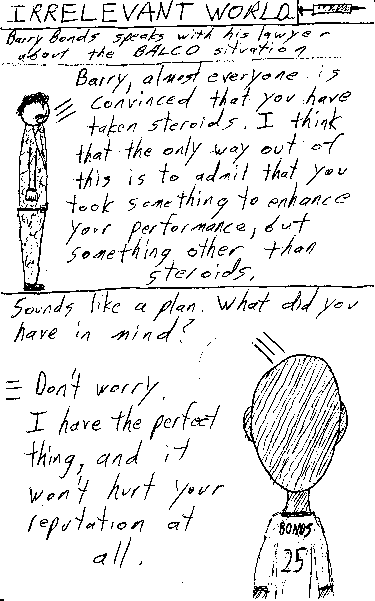 IRRELEVANT WORLD
Barry Bonds speaks with his lawyer
about the BALCO situation
Barry, almost everyone is
convinced that you have
taken steroids. I think
that the only way out of
this is to admit that you
took something to enhance
your performance, but
something other than
steroids.
Sounds like a plan. What did you
have in mind?
Don't worry.
I have the perfect
thing, and it
won't hurt your
reputation at
all.
BONDS
25